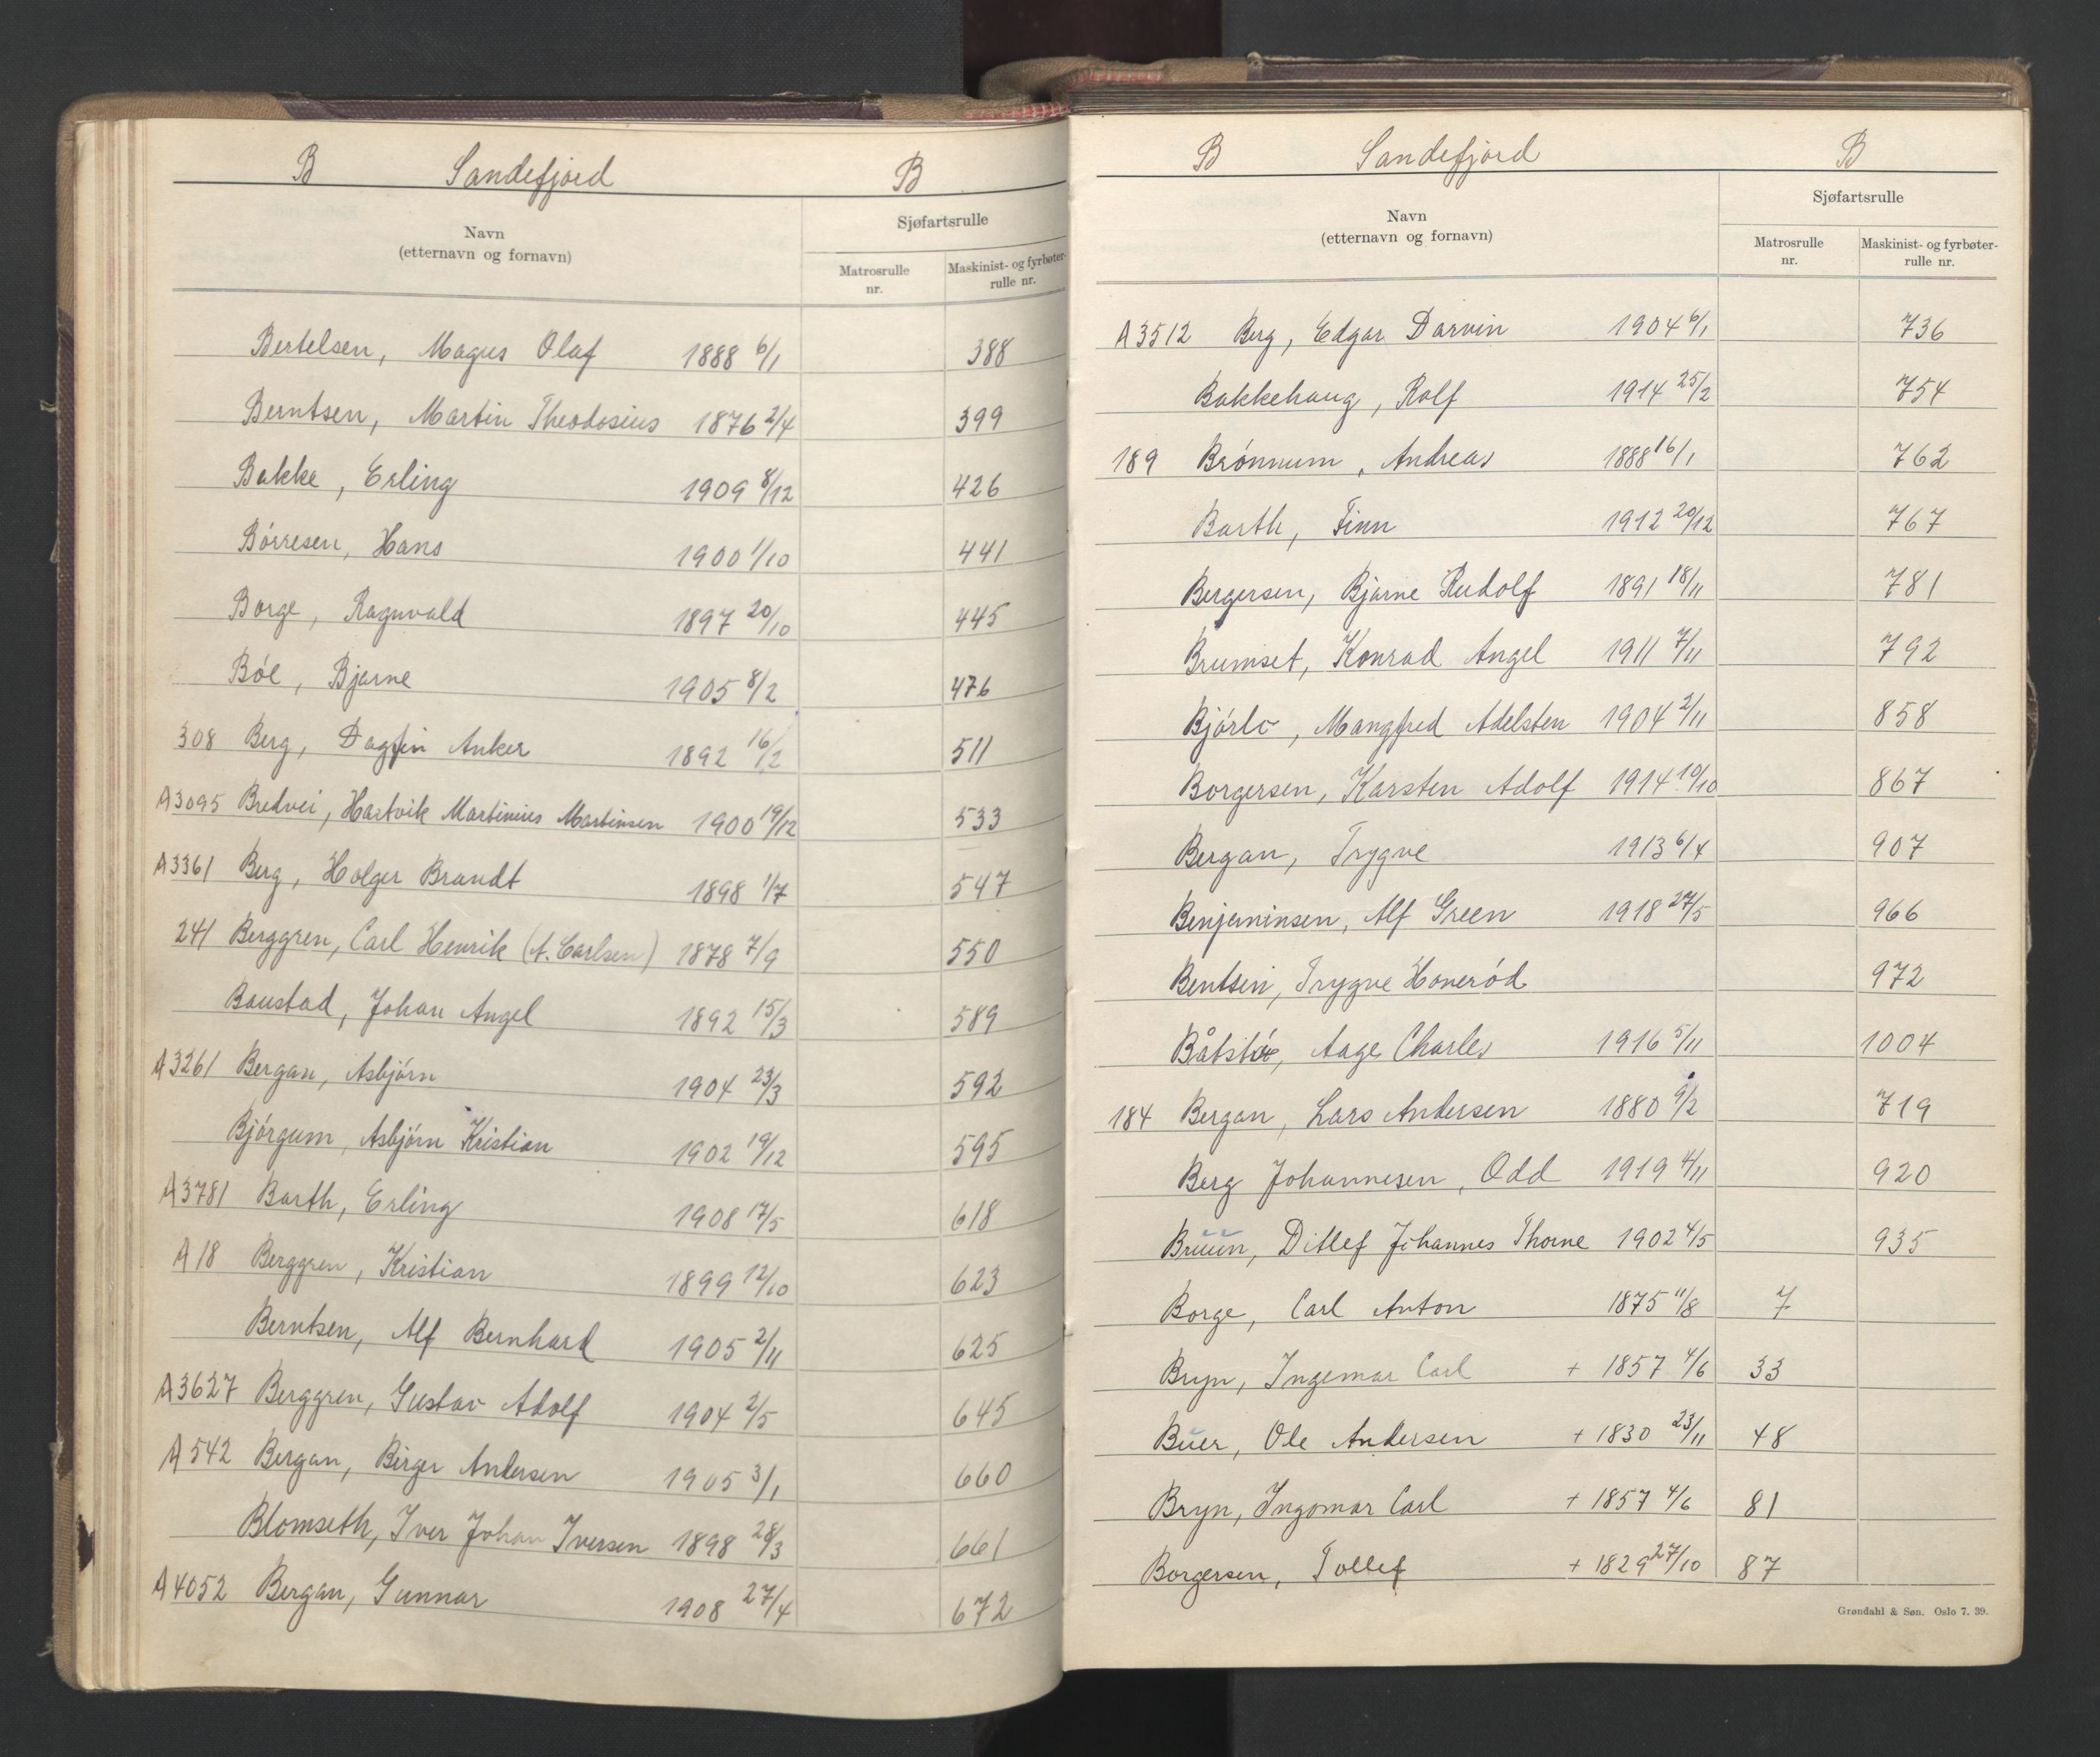 B Sandefjord B
Navn
(etternavn og fornavn)
Sjøfartsrulle
Matrosrulle nr.
Maskinist- og fyrbøter-rulle nr.
Bertelsen, Magus Olaf 1888 6/1 388
Berntsen, Martin Theodosius 1876 2/4 399
Bakke, Erling 1909 8/12 426
Børresen, Hans 1900 1/10 441
Borge, Ragnvald 1897 20/10 445
Bøe, Bjarne 1905 8/2 476
308 Berg, Dagfin Anker 1892 16/2 511
A3095 Bredvei, Hartvik Martinius Martinsen 1900 19/12 533
A3361 Berg, Holger Brandt 1898 1/7 547
241 Berggren, Carl Henrik (A. Carlsen) 1878 7/9 550
Baustad, Johan Angel 1892 15/3 589
A3261 Bergan, Asbjørn 1904 23/3 592
Bjørgum, Asbjørn Kristian 1902 19/12 595
A3781 Barth, Erling 1908 17/5 618
A18 Berggren, Kristian 1899 12/10 623
Berntsen, Alf Bernhard 1905 2/11 625
A3627 Berggren, Gustav Adolf 1904 2/5 645
A542 Bergan, Birger Andersen 1905 3/1 660
Blomseth, Iver Johan Iversen 1898 28/3 661
A4052 Bergan, Gunnar 1908 27/4 672
B Sandefjord B
Navn
(etternavn og fornavn)
Sjøfartsrulle
Matrosrulle nr.
Maskinist- og fyrbøter-rulle nr.
A3512 Berg, Edgar Darvin 1904 6/1 736
Bakkehaug, Rolf 1914 25/2 754
189 Brønnum, Andreas 1888 16/1 762
Barth, Finn 1912 20/12 767
Bergersen, Bjarne Rudolf 1891 18/11 781
Brumset, Konrad Angel 1911 7/11 792
Bjørlo, Mangfred Adelsten 1904 2/11 858
Borgersen, Karsten Adolf 1914 10/10 867
Bergan, Trygve 1913 6/4 907
Benjaminsen, Alf Green 1918 27/5 966
Bentsen, Trygve Hanerød 972
Båtstø, Aage Charles 1916 5/11 1004
184 Bergan, Lars Andersen 1880 9/2 719
Berg Johannesen, Odd 1919 4/11 920
Bruun, Ditlef Johannes Thorne 1902 4/5 935
Borge, Carl Anton 1875 11/8 7
Bryn, Ingemar Carl + 1857 4/6 33
Buer, Ole Andersen + 1830 23/11 48
Bryn, Ingomar Carl + 1857 4/6 81
Borgersen, Tollef + 1829 27/10 87
Grøndahl & Søn. Oslo 7. 39.